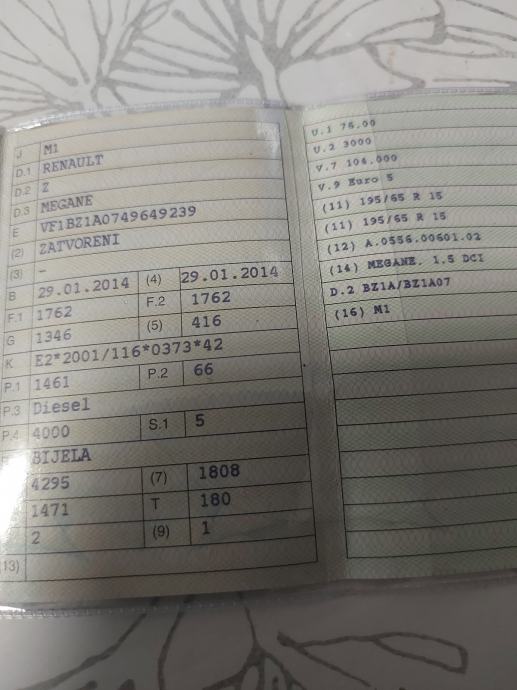 J M1
D.1 RENAULT
D.2 Z
D.3 MEGANE
E VF1BZ1A0749649239
(2) ZATVORENI
(3) -
B 29.01.2014 (4) 29.01.2014
F.1 1762 F.2 1762
G 1346 (5) 416
K E2*2001/116*0373*42
P.1 1461 P.2 66
P.3 Diesel
P.4 4000 S.1 5
BIJELA
4295 (7) 1808
1471 T 180
2 (9) 1
(13)
U.1 76.00
U.2 3000
V.7 104.000
V.9 Euro 5
(11) 195/65 R 15
(11) 195/65 R 15
(12) A.0556.00601.02
(14) MEGANE, 1.5 DCI
D.2 BZ1A/BZ1A07
(16) M1